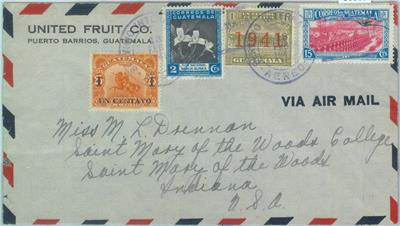 UNITED FRUIT CO.
PUERTO BARRIOS, GUATEMALA
CORREOS DE GUATEMALA
2
1941
AEREO
GUATEMALA
CORREOS GUATEMALA
15
GUATEMALA
1
UN CENTAVO
VIA AIR MAIL
Miss M. L. Drennan
Saint Mary of the Woods College
Saint Mary of the Woods
Indiana
U.S.A